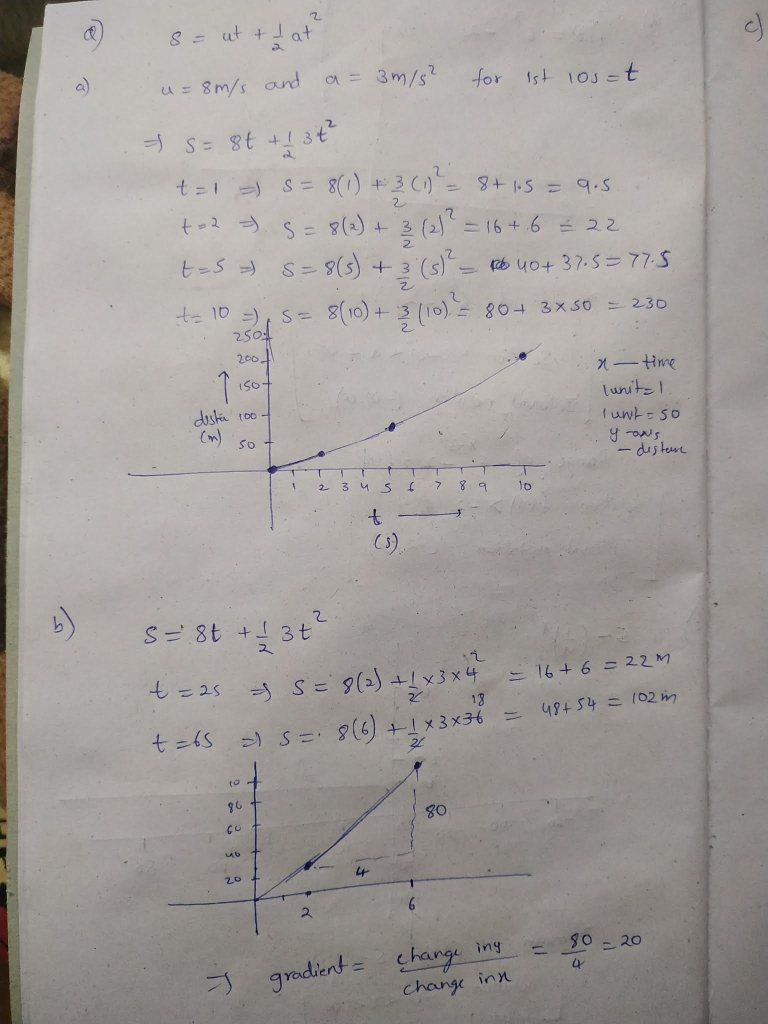 Q) s = ut + 1/2 at²
c)
a) u = 8m/s and a = 3m/s² for 1st 10s = t
⇒ s = 8t + 1/2 3t²
t=1 ⇒ s = 8(1) + 3/2 (1)² = 8 + 1.5 = 9.5
t=2 ⇒ s = 8(2) + 3/2 (2)² = 16 + 6 = 22
t=5 ⇒ s = 8(5) + 3/2 (5)² = 40 + 37.5 = 77.5
t=10 ⇒ s = 8(10) + 3/2 (10)² = 80 + 3×50 = 230
250
200
150
100
50
dista
(m)
x — time
1unit=1
1unit=50
y-axis
— distance
1 2 3 4 5 6 7 8 9 10
t
(s)
b) s = 8t + 1/2 3t²
t=2s ⇒ s = 8(2) + 1/2 ×3×4 2 = 16 + 6 = 22m
t=6s ⇒ s = 8(6) + 1/2 ×3×36 18 = 48 + 54 = 102m
10
80
60
40
20
80
4
2 6
⇒ gradient = change in y / change in x = 80/4 = 20